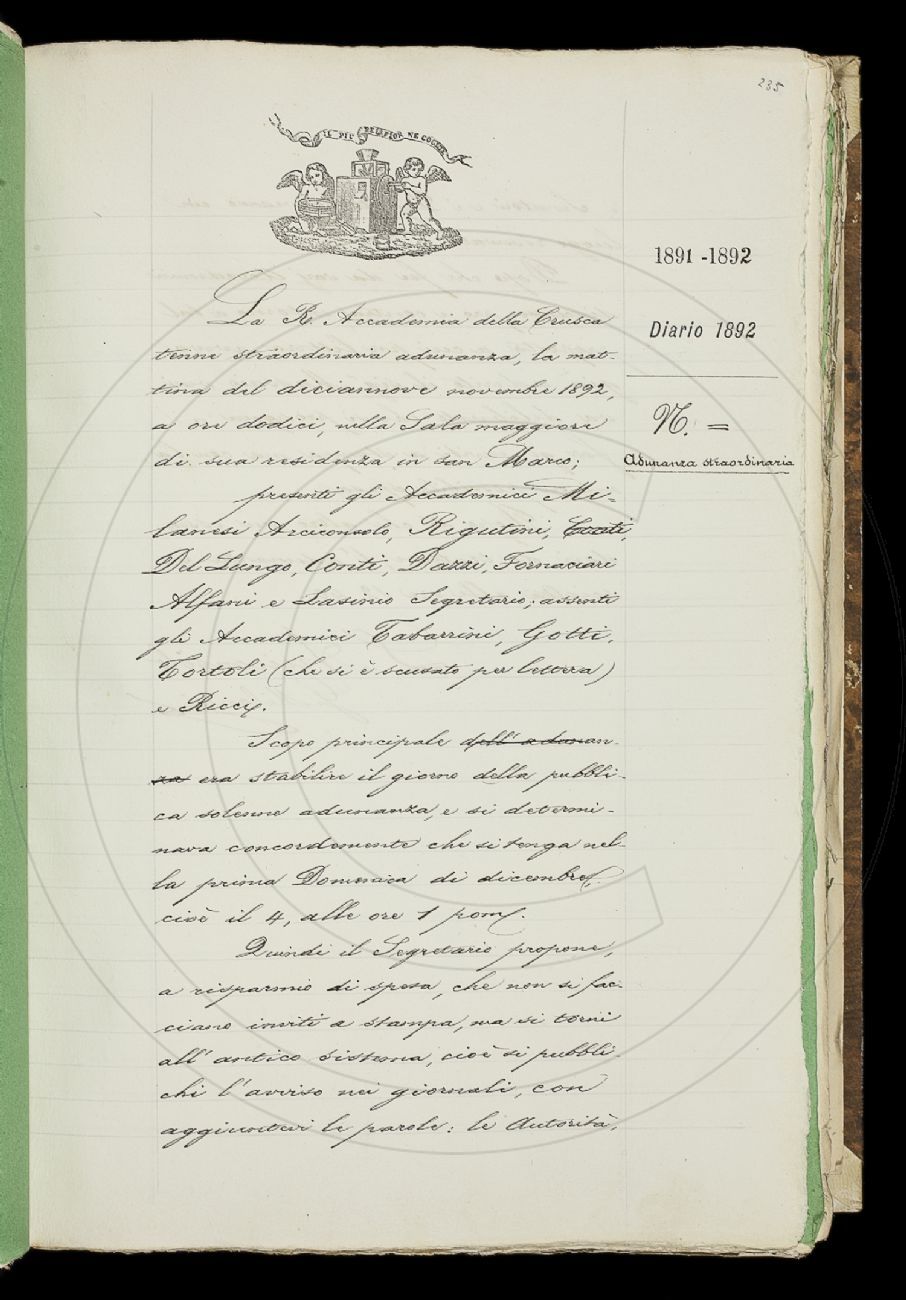 235
IL PIÙ BEL FIOR NE COGLIE
1891-1892
Diario 1892
N. =
Adunanza straordinaria
La R. Accademia della Crusca
tenne straordinaria adunanza, la mat-
tina del diciannove novembre 1892,
a ore dodici, nella Sala maggiore
di sua residenza in san Marco;
presenti gli Accademici Mi-
lanesi Arciconsolo, Rigutini, Conti,
Del Lungo, Conti, Dazzi, Fornaciari
Alfani e Lasinio Segretario; assenti
gli Accademici Tabarrini, Gotti,
Tortoli (che si è scusato per lettera)
e Ricci.
Scopo principale dell'adunan-
za era stabilire il giorno della pubbli-
ca solenne adunanza, e si determi-
nava concordemente che si tenga nel-
la prima Domenica di dicembre,
cioè il 4, alle ore 1 pom.
Quindi il Segretario propone,
a risparmio di spesa, che non si fac-
ciano inviti a stampa, ma si torni
all'antico sistema, cioè si pubbli-
chi l'avviso nei giornali, con
aggiuntevi le parole: le Autorità,